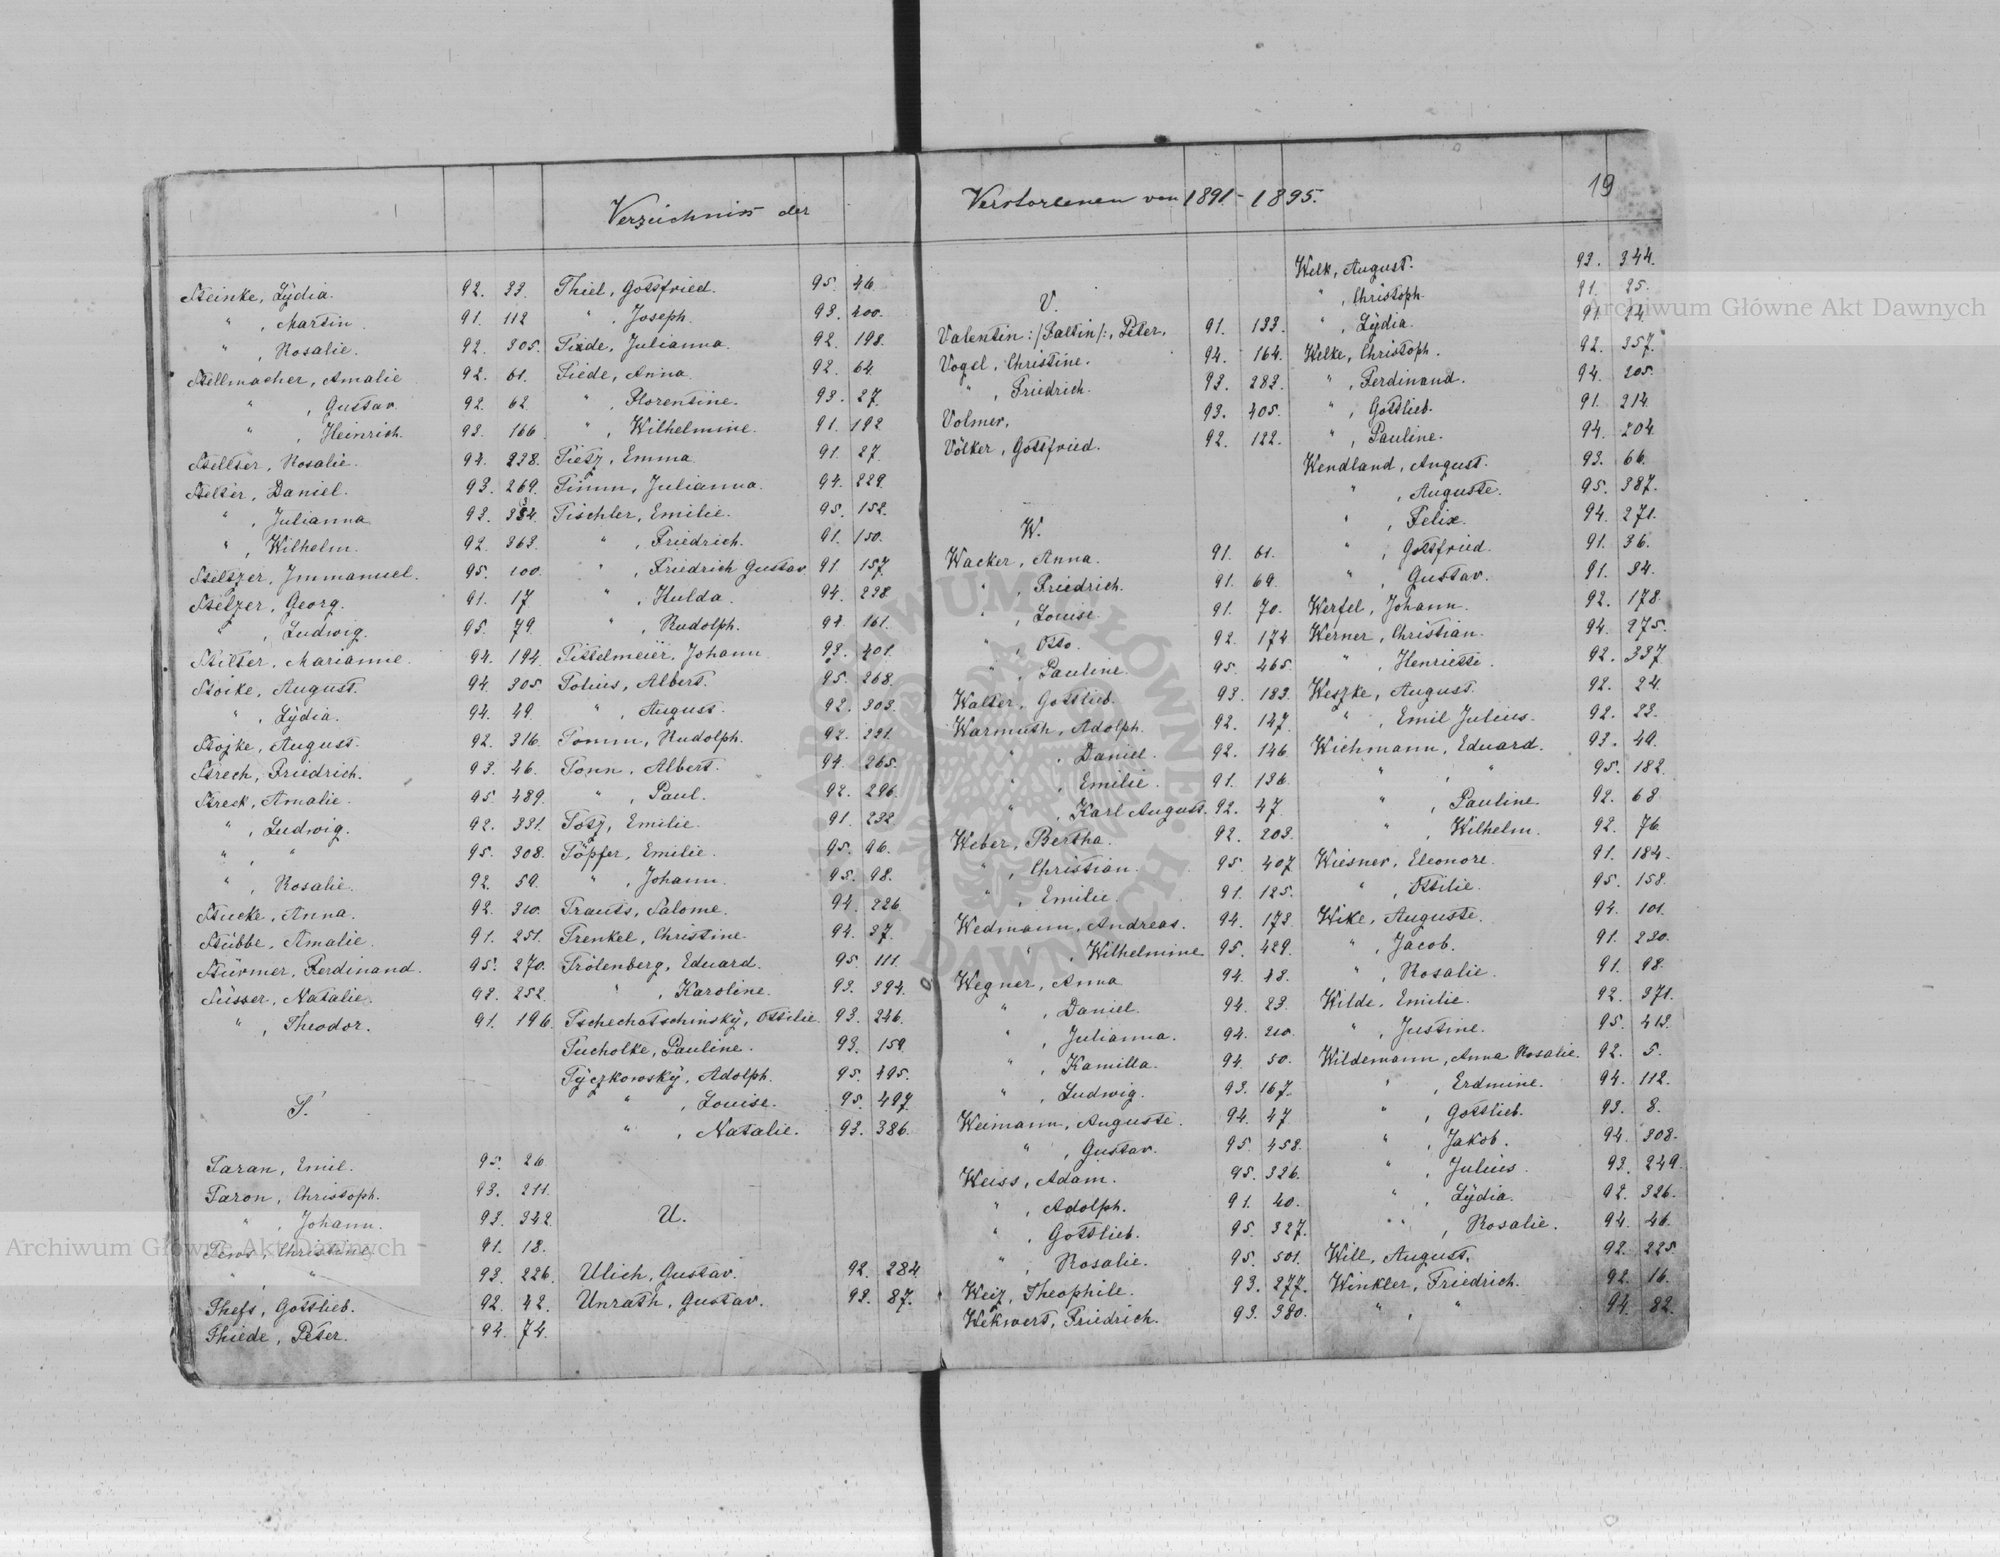 Verzeichniss der Verstorbenen von 1891.- 1895.
19
Steinke, Lÿdia. 92. 33.
" , Martin. 91. 112
" , Rosalie. 92. 305.
Stellmacher, Amalie 92. 61.
" , Gustav. 92. 62.
" , Heinrich. 93. 166
Steltser, Rosalie. 94. 238.
Stelter, Daniel. 93. 269.
" , Julianna 92.
" , Wilhelm. 92. 363.
Steltzer, Immanuel. 95. 100.
Stelzer, Georg. 91. 17
" , Ludwig. 95. 79.
Stilter, Marianne. 94. 194.
Stoike, August. 94. 305.
" , Lÿdia. 94. 49.
Stojke, August. 92. 316.
Strech, Friedrich. 93. 46.
Streck, Amalie. 95. 489.
" , Ludwig. 92. 331.
" , " 95. 308.
" , Rosalie. 92. 59.
Stucke, Anna. 92. 310.
Stübbe, Amalie. 91. 251.
Stürmer, Ferdinand. 95. 270.
Süsser, Natalie. 92. 252.
" , Theodor. 91. 196.
T.
Taran, Emil. 95. 26
Taron, Christoph. 93. 211.
" , Johann. 93. 342.
Tews, Christine 91. 18.
" , " 93. 226.
Thefs, Gottlieb. 92. 42.
Thiede, Peter. 94. 74.
Thiel, Gottfried. 95. 46
" , Joseph. 93. 400.
Tiede, Julianna. 92. 198.
Tiede, Anna. 92. 64.
" , Florentine. 93. 27.
" , Wilhelmine. 91. 192
Tietz, Emma 91. 27.
Timm, Julianna. 94. 229
Tischler, Emilie. 95. 152.
" , Friedrich. 91. 150.
" , Friedrich Gustav. 91. 157
" , Hulda. 94. 238.
" , Rudolph. 94. 161.
Tittelmeier, Johann 93. 401.
Tolius, Albert. 95. 268.
" , August. 92. 303.
Tomm, Rudolph. 92. 221.
Tonn, Albert. 94. 265.
" , Paul. 92. 296.
Totz, Emilie. 91. 232.
Töpfer, Emilie. 95. 96.
" , Johann. 95. 98.
Trauts, Salome. 94. 226
Trenkel, Christine. 94. 37.
Trölenberg, Eduard. 95. 111.
" , Karoline. 93. 394.
Tschechotschinskÿ, Ottilie. 93. 246.
Tucholke, Pauline. 93. 159
Tÿczkowskÿ, Adolph. 95. 495.
" , Louise. 95. 497
" , Natalie. 93. 386.
U.
Ulich, Gustav. 92. 284
Unrath, Gustav. 93. 87.
V.
Valentin :/Faltin/:, Peter. 91. 133.
Vogel, Christine. 94. 164.
" , Friedrich. 93. 283.
Volmer, 93. 405.
Völker, Gottfried. 92. 122.
W.
Wacker, Anna. 91. 61.
" , Friedrich. 91. 69.
" , Louise. 91. 70.
" , Otto. 92. 174
" , Pauline. 95. 465.
Walter, Gottlieb. 93. 183.
Warmuth, Adolph. 92. 147.
" , Daniel. 92. 146
" , Emilie. 91. 136.
" , Karl August. 92. 47
Weber, Bertha. 92. 203.
" , Christian. 95. 407
" , Emilie. 91. 125.
Wedmann, Andreas. 94. 173.
" , Wilhelmine 95. 429.
Wegner, Anna 94. 48.
" , Daniel. 94. 23.
" , Julianna. 94. 210.
" , Kamilla. 94. 50.
" , Ludwig. 93. 167.
Weimann, Auguste. 94. 47
" , Gustav. 95. 458.
Weiss, Adam. 95. 326.
" , Adolph. 91. 40.
" , Gottlieb. 95. 327.
" , Rosalie. 95. 501.
Weiz, Theophile. 93. 277.
Wekwert, Friedrich. 93. 380.
Welk, August. 93. 344.
" , Christoph. 91. 25.
" , Lÿdia. 91. 24.
Welke, Christoph. 92. 357.
" , Ferdinand. 94. 205.
" , Gottlieb. 91. 214.
" , Pauline. 94. 204.
Wendland, August. 93. 66.
" , Auguste. 95. 387.
" , Felix. 94. 271.
" , Gottfried. 91. 36.
" , Gustav. 91. 34.
Werfel, Johann. 92. 178.
Werner, Christian. 94. 275.
" , Henriette. 92. 337
Weszke, August. 92. 24.
" , Emil Julius. 92. 23.
Wichmann, Eduard. 93. 49.
" , " 95. 182.
" , Pauline. 92. 68
" , Wilhelm. 92. 76.
Wiesner, Eleonore. 91. 184.
" , Ottilie. 95. 158.
Wike, Auguste. 94. 101.
" , Jacob. 91. 230.
" , Rosalie. 91. 98.
Wilde, Emilie. 92. 371.
" , Justine. 95. 413.
Wildemann, Anna Rosalie. 92. 5.
" , Erdmine. 94. 112.
" , Gottlieb. 93. 8.
" , Jakob. 94. 308.
" , Julius. 93. 249.
" , Lÿdia. 92. 326.
" , Rosalie. 94. 46.
Will, August. 92. 225.
Winkler, Friedrich. 92. 16.
" , " 94. 82.
Archiwum Główne Akt Dawnych
Archiwum Główne Akt Dawnych
ARCHIWUM GŁÓWNE AKT DAWNYCH